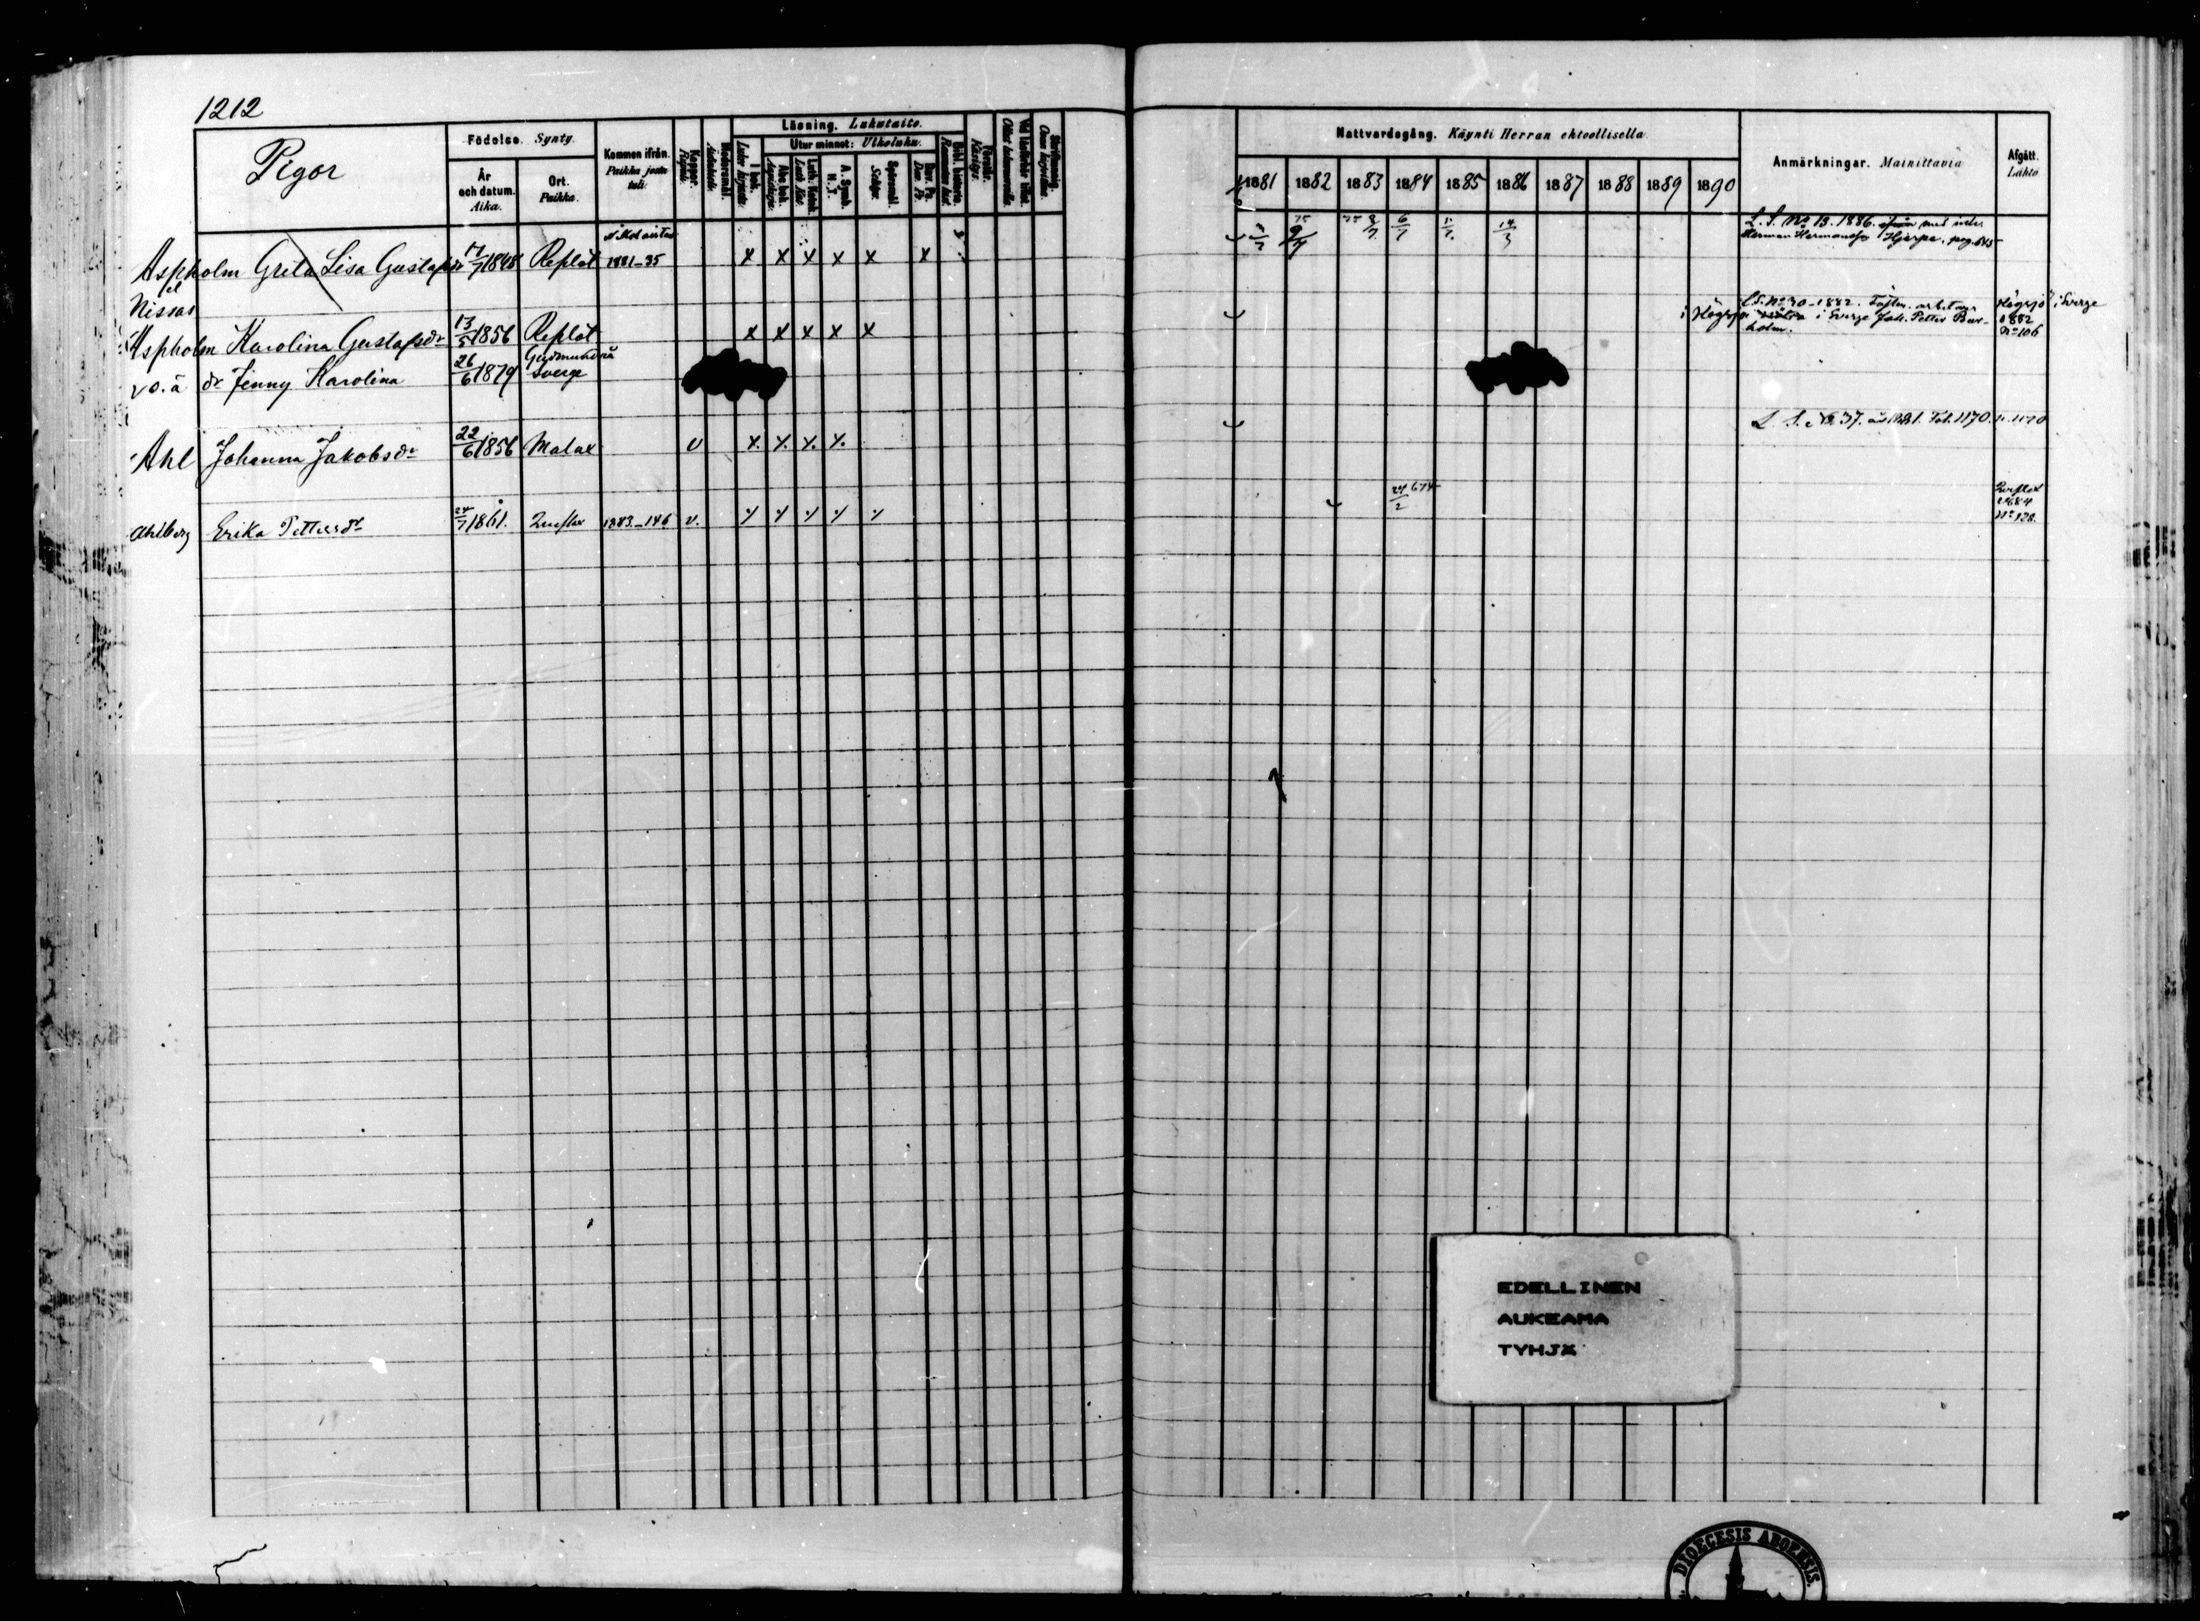 1212
Pigor
Födelse. Synty.
År och datum. Aika.
Ort. Paikka.
Kommen ifrån. Paikka josta tuli.
Koppor. Rupuli.
Läsning. Lukutaito.
Utur minnet: Ulkoluku.
I bok.
Abc bok.
Luth. Katek.
A. Symb. H. T.
Spörsmål.
Dav. Ps.
Bibl. historia.
Nattvardsgång. Käynti Herran ehtoollisella.
1881 1882 1883 1884 1885 1886 1887 1888 1889 1890
Anmärkningar. Mainittavia
Afgått. Lähtö.
Aspholm Greta Lisa Gustafsdr 17/7 1848 Replot 1881-35 x x x x x x
L. S. No 13. 1886. med
Herman Hermansson Hjerpe. pag. 645
el
Nissas
Aspholm Karolina Gustafsdr 13/5 1856 Replot x x x x x
i Högsjö
i Sverge Joh. Petter Bur-
holm.
Högsjö i Sverge
1882
No 106
v o. ä dr Jenny Karolina 26/6 1879 Gudmundrå Sverge
Ahl Johanna Jakobsdr 22/6 1856 Malax v x. x. x. x.
L. S. No 37. 1881. 1170.
Ahlberg Erika Pettersdr 24/7 1861. Qveflax 1883-146 v.
24/2
Qveflax
1884
No 128.
EDELLINEN
AUKEAMA
TYHJÄ
DIOECESIS ABOENSIS.